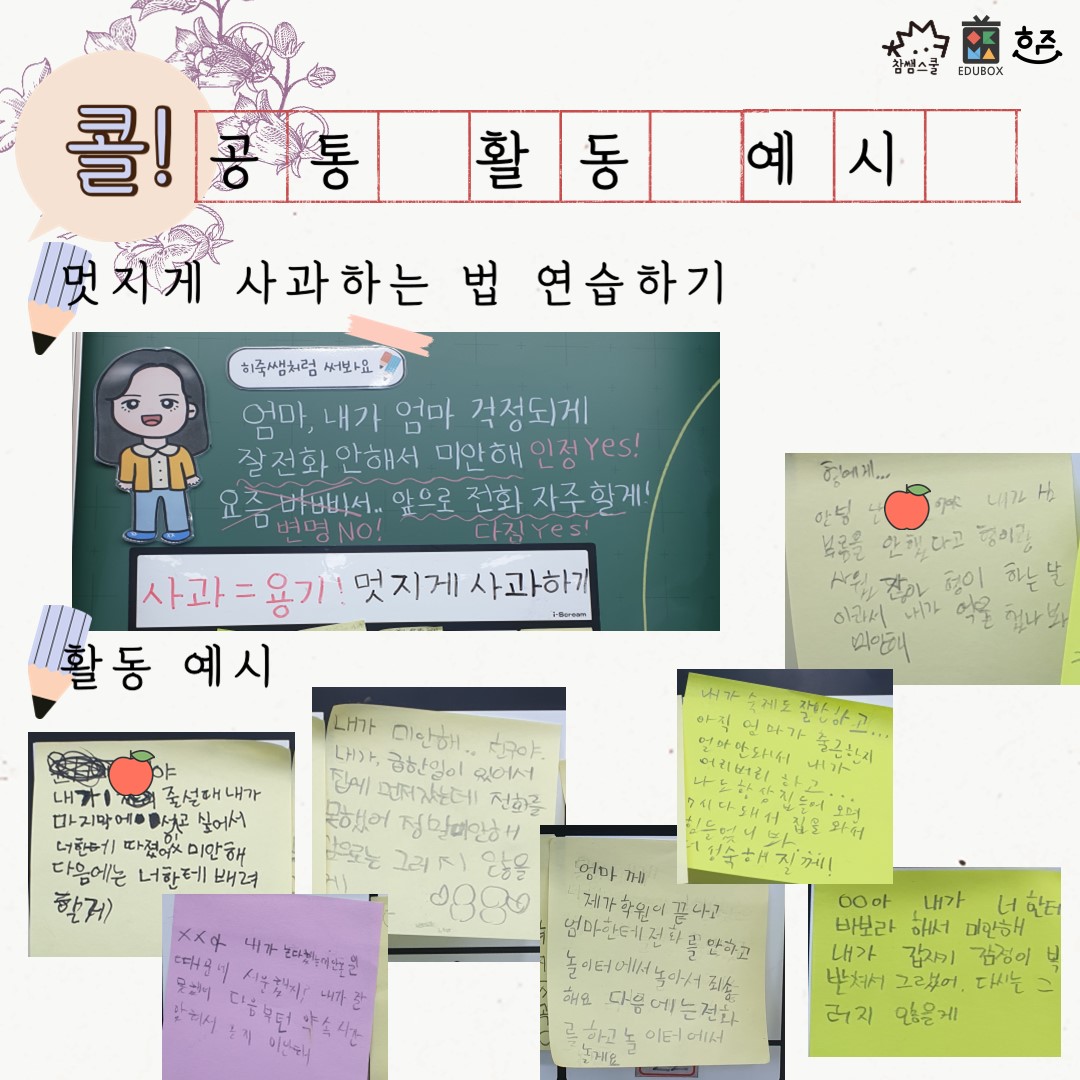 참쌤스쿨
EDUBOX
히즈
콜!
공통 활동 예시
멋지게 사과하는 법 연습하기
히죽쌤처럼 써봐요
엄마, 내가 엄마 걱정되게
잘 전화 안해서 미안해 인정 Yes!
요즘 바빠서.. 앞으로 전화 자주 할게!
변명 NO! 다짐 Yes!
사과 = 용기! 멋지게 사과하기
i-Scream
활동 예시
형에게...
안녕 내가 심
부름을 안했다고 형이랑
형이 하는 날
이라서 내가
미안해
내가 숙제도 잘 안하고...
아직 엄마가 출근한지
얼마안돼서 내가
어리버리 하고...
나도 항상 집 들어 오면
7시 다 돼서 집을 와서
힘들었나 봐...
더 성숙해 질께!
내가 미안해.. 친구야.
내가, 급한일이 있어서
집에 먼저갔는데 전화를
못했어 정말미안해
앞으로는 그러지 않을
게!
야
내가 줄설때 내가
마지막에 서고 싶어서
너한테 따졌어 미안해
다음에는 너한테 배려
할게
XX아 내가
때문에 서운했지? 내가 잘
못했어 다음부턴 약속시간
미안해
엄마 께
제가 학원이 끝나고
엄마한테 전화를 안하고
놀이터에서 놀아서 죄송
해요 다음에는 전화
를 하고 놀이터에서
놀게요
OO아 내가 너한테
바보라 해서 미안해
내가 갑자기 감정이 북
받쳐서 그랬어. 다시는 그
러지 않을게